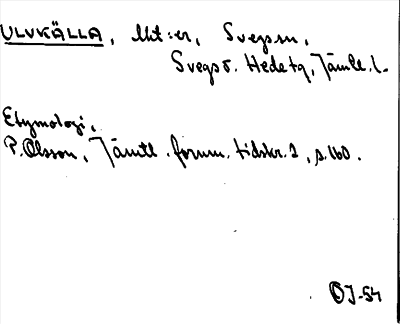 ULVKÄLLA, Mt:er, Svegs sn,
Svegs o. Hede tg, Jämtl. l.
Etymologi,
P. Olsson, Jämtl. fornm. tidskr. 2, s. 160.
OJ-54